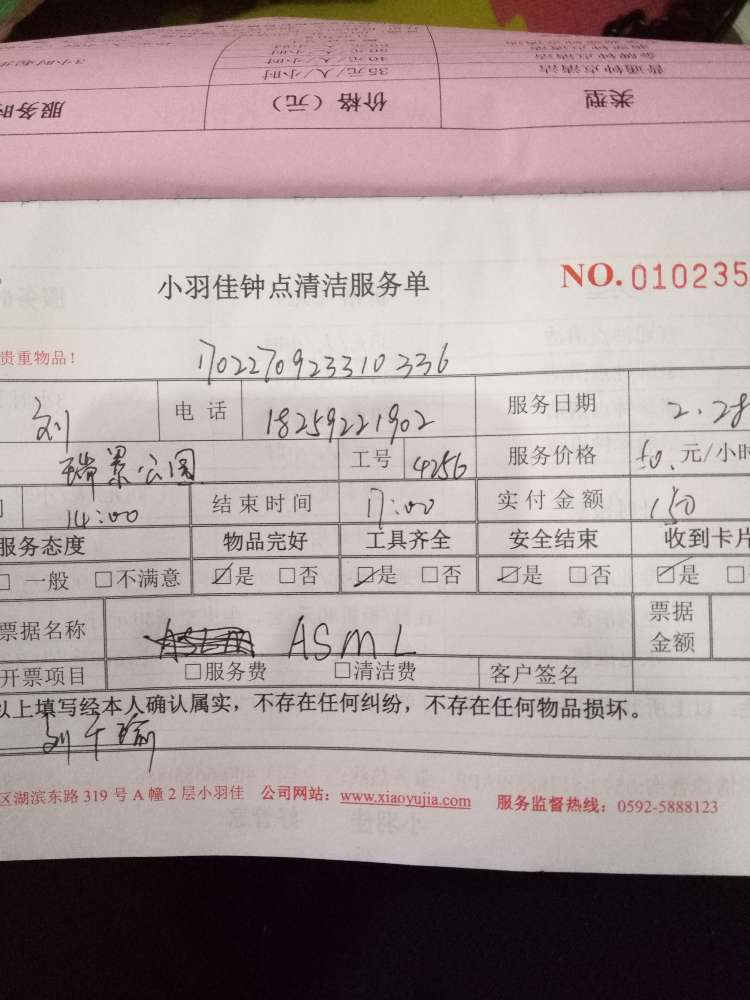 3小时起
40元/人/小时
普通钟点清洁
35元/人/小时
类型
价格（元）
服务时
小羽佳钟点清洁服务单
NO. 010235
贵重物品！
1702270923310336
刘
电 话
18259221902
服务日期
2.28
瑞景公园
工号
4256
服务价格
50. 元/小时
14:00
结 束 时 间
17:00
实 付 金 额
150
服务态度
物品完好
工具齐全
安全结束
收到卡片
□ 一般 □不满意
☑是 □否
☑是 □否
☑是 □否
☑是 □
票据名称
ASML
票据金额
开票项目
□服务费 □清洁费
客户签名
以上填写经本人确认属实，不存在任何纠纷，不存在任何物品损坏。
区湖滨东路 319 号 A 幢 2 层小羽佳 公司网站：www.xiaoyujia.com 服务监督热线：0592-5888123